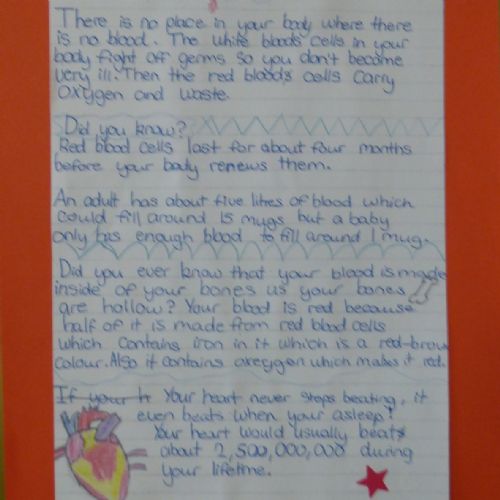 There is no place in your body where there
is no blood. The white bloods cells in your
body fight off germs so you don't become
very ill. Then the red bloods cells carry
oxygen and waste.
Did you know?
Red blood cells last for about four months
before your body renews them.
An adult has about five litres of blood which
could fill around 15 mugs but a baby
only has enough blood to fill around 1 mug.
Did you ever know that your blood is made
inside of your bones as your bones
are hollow? Your blood is red because
half of it is made from red blood cells
which contains iron in it which is a red-brown
colour. Also it contains oxeygen which makes it red.
If your h Your heart never stops beating, it
even beats when your asleep!
Your heart would usually beats
about 2,500,000,000 during
your lifetime.